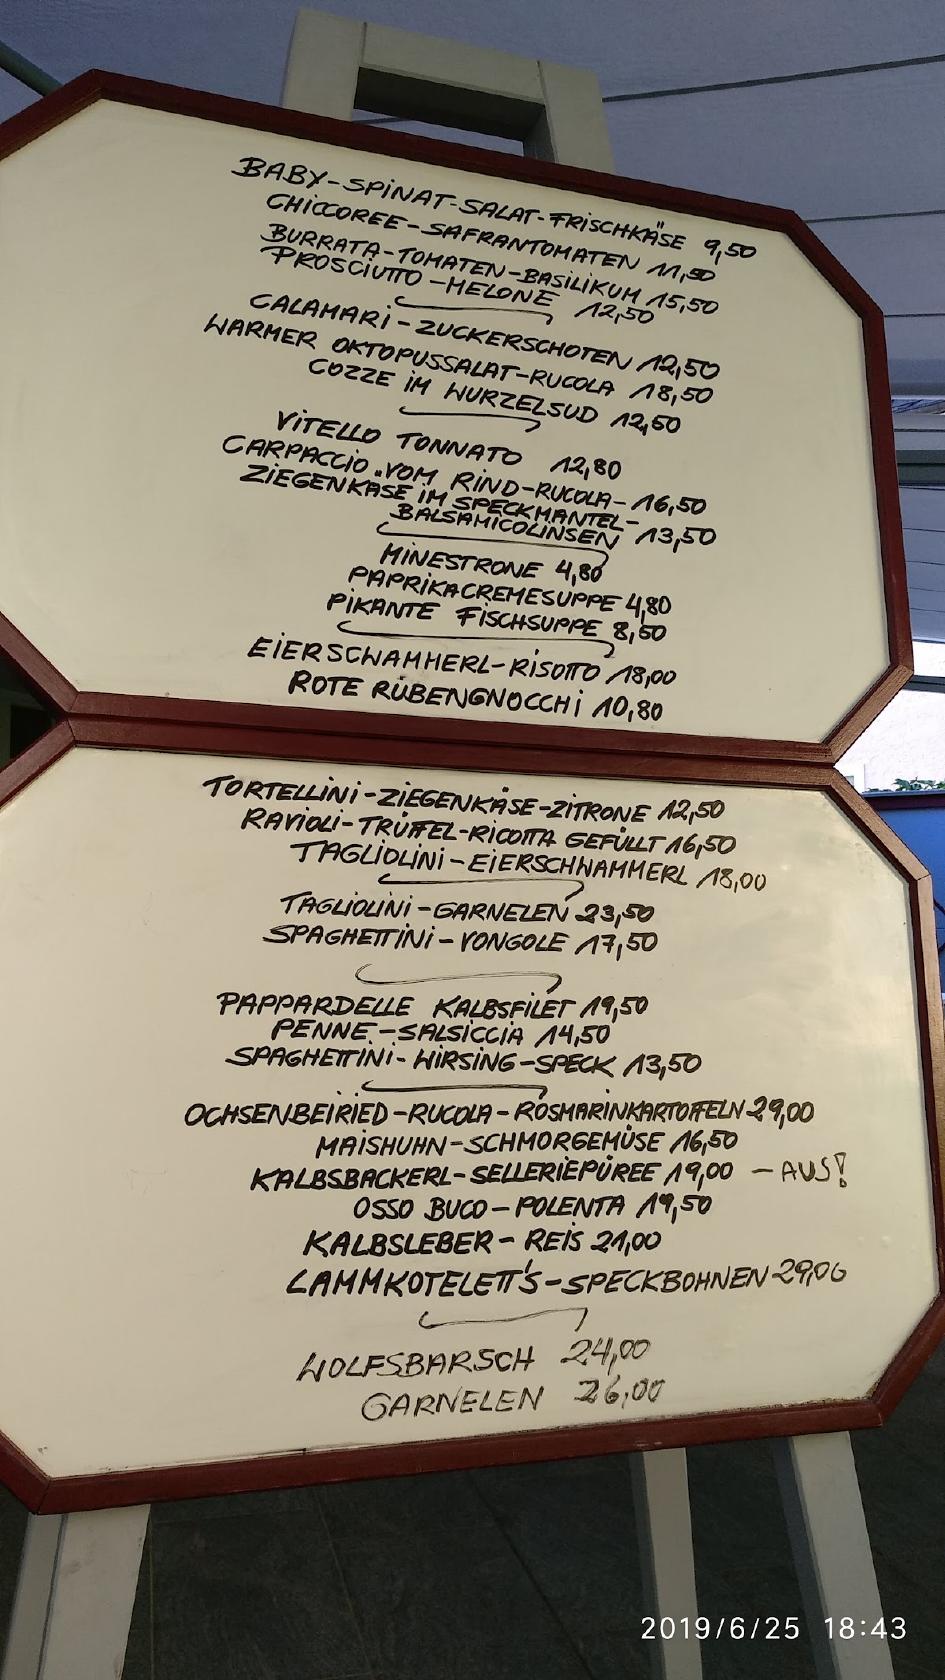 BABY-SPINAT-SALAT-FRISCHKÄSE 9,50
CHICCOREE-SAFRANTOMATEN 11,50
BURRATA-TOMATEN-BASILIKUM 15,50
PROSCIUTTO-MELONE 12,50
CALAMARI-ZUCKERSCHOTEN 12,50
WARMER OKTOPUSSALAT-RUCOLA 18,50
COZZE IM WURZELSUD 12,50
VITELLO TONNATO 12,80
CARPACCIO VOM RIND-RUCOLA- 16,50
ZIEGENKÄSE IM SPECKMANTEL-
BALSAMICOLINSEN 13,50
MINESTRONE 4,80
PAPRIKACREMESUPPE 4,80
PIKANTE FISCHSUPPE 8,50
EIERSCHWAMMERL-RISOTTO 18,00
ROTE RÜBENGNOCCHI 10,80
TORTELLINI-ZIEGENKÄSE-ZITRONE 12,50
RAVIOLI-TRÜFFEL-RICOTTA GEFÜLLT 16,50
TAGLIOLINI-EIERSCHWAMMERL 18,00
TAGLIOLINI-GARNELEN 23,50
SPAGHETTINI-VONGOLE 17,50
PAPPARDELLE KALBSFILET 19,50
PENNE-SALSICCIA 14,50
SPAGHETTINI-WIRSING-SPECK 13,50
OCHSENBEIRIED-RUCOLA-ROSMARINKARTOFFELN 29,00
MAISHUHN-SCHMORGEMÜSE 16,50
KALBSBACKERL-SELLERIEPÜREE 19,00 - AUS!
OSSO BUCO-POLENTA 19,50
KALBSLEBER-REIS 21,00
LAMMKOTELETT'S-SPECKBOHNEN 29,00
WOLFSBARSCH 24,00
GARNELEN 26,00
2019/6/25 18:43